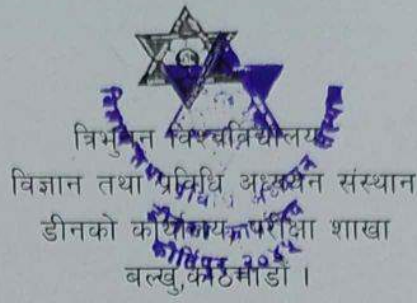 त्रिभुवन विश्वविद्यालय
विज्ञान तथा प्रविधि अध्ययन संस्थान
डीनको कार्यालय परीक्षा शाखा
बल्खु,काठमाडौं ।